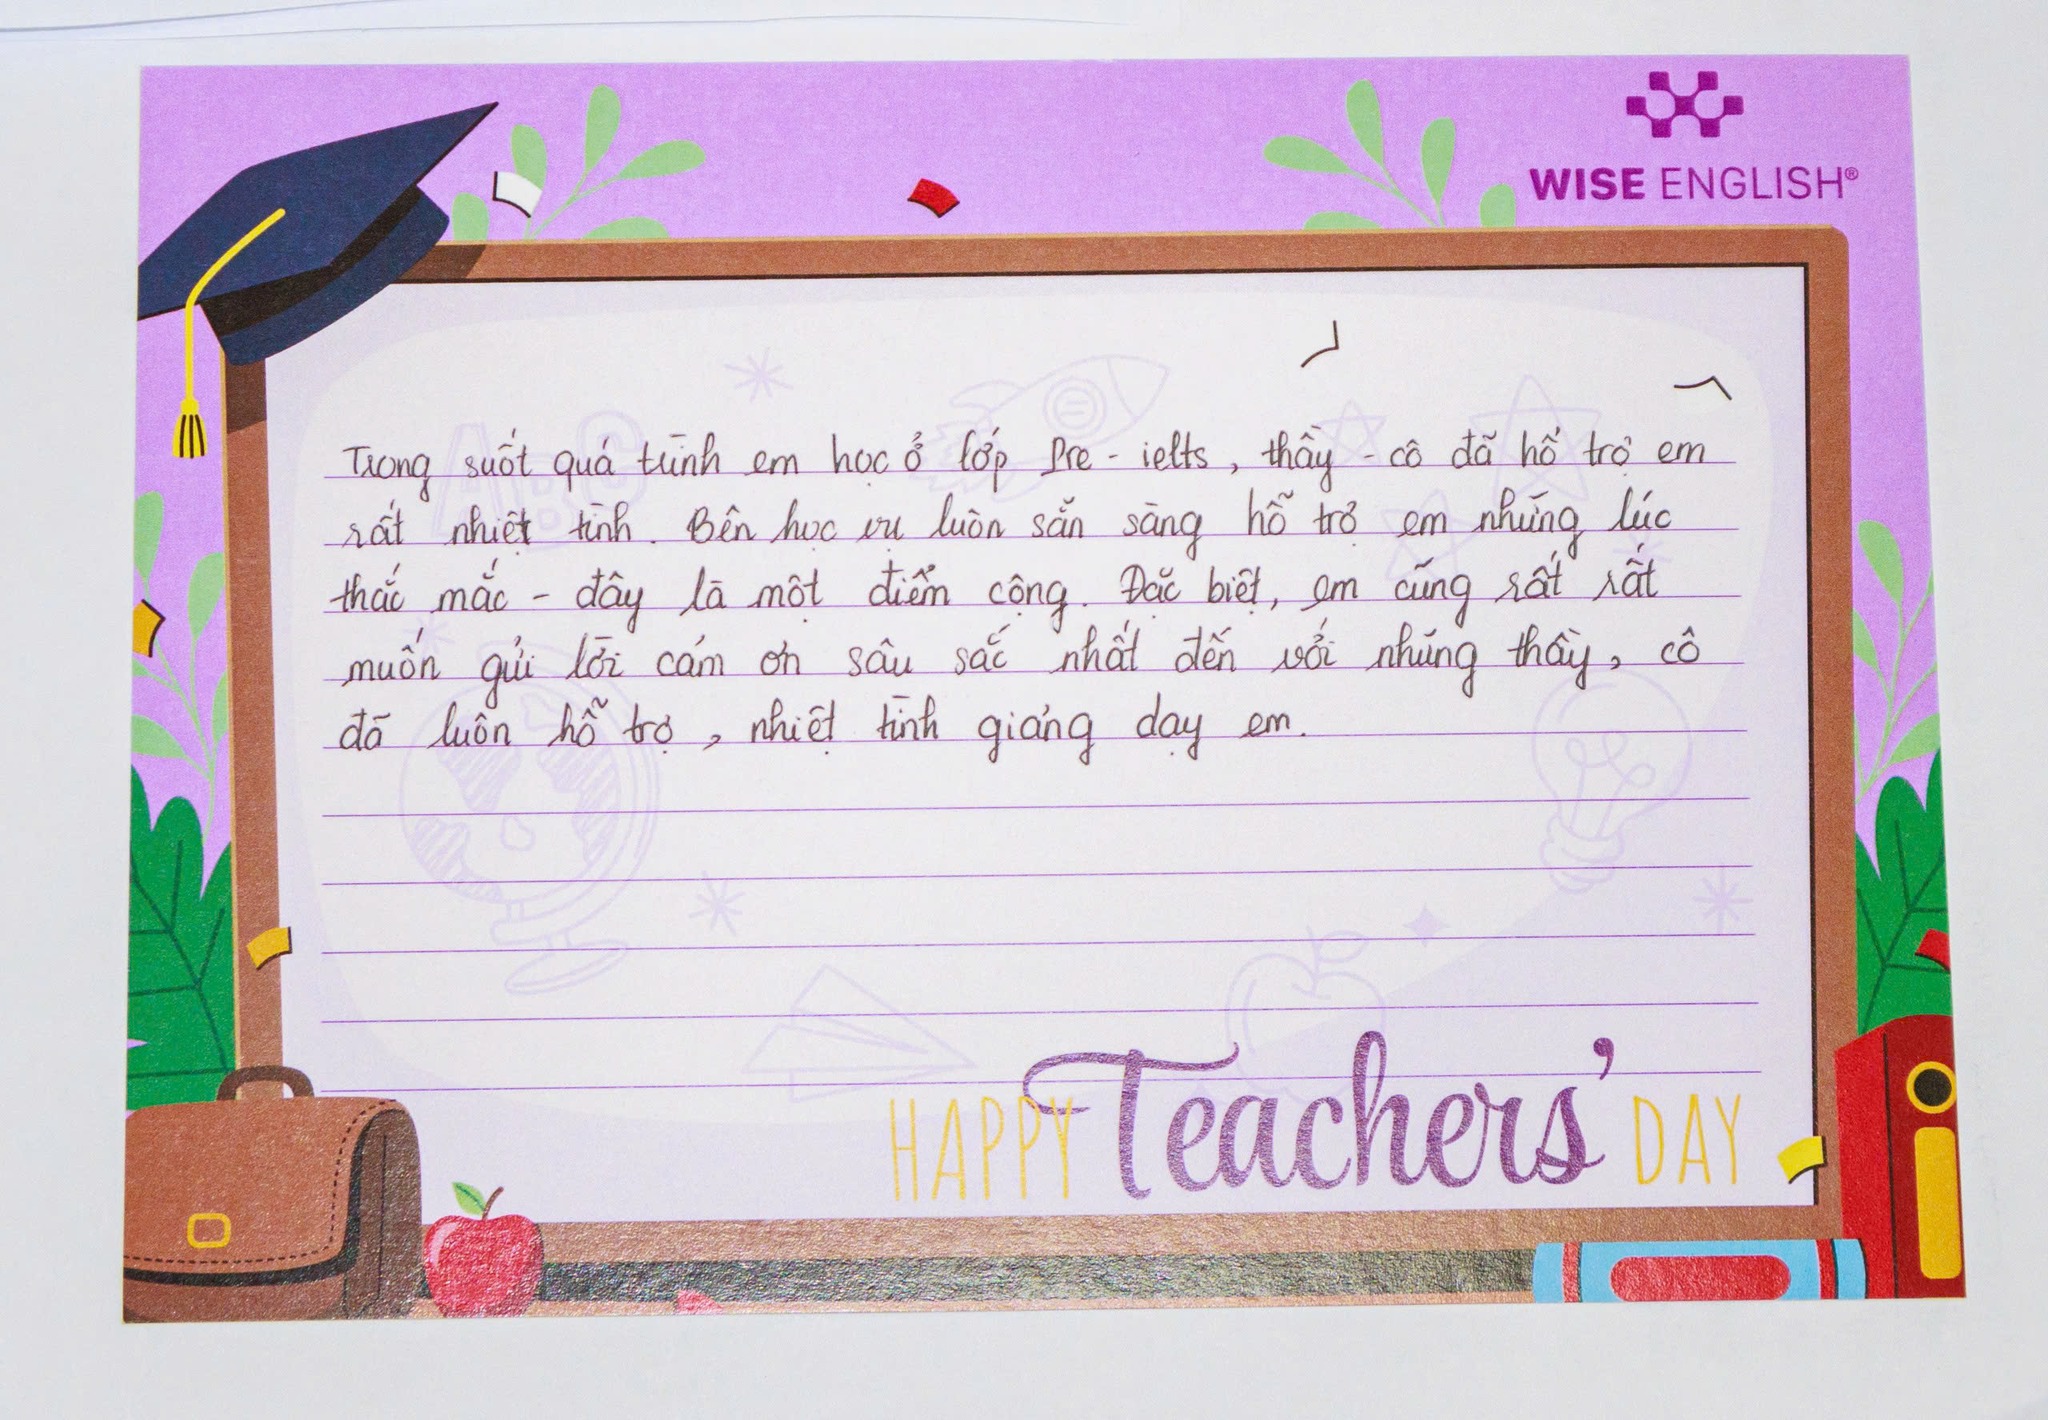 WISE ENGLISH®
Trong suốt quá trình em học ở lớp Pre - ielts, thầy - cô đã hỗ trợ em
rất nhiệt tình. Bên học vụ luôn sẵn sàng hỗ trợ em những lúc
thắc mắc - đây là một điểm cộng. Đặc biệt, em cũng rất rất
muốn gửi lời cám ơn sâu sắc nhất đến với những thầy, cô
đã luôn hỗ trợ, nhiệt tình giảng dạy em.
HAPPY Teachers' DAY
ABC